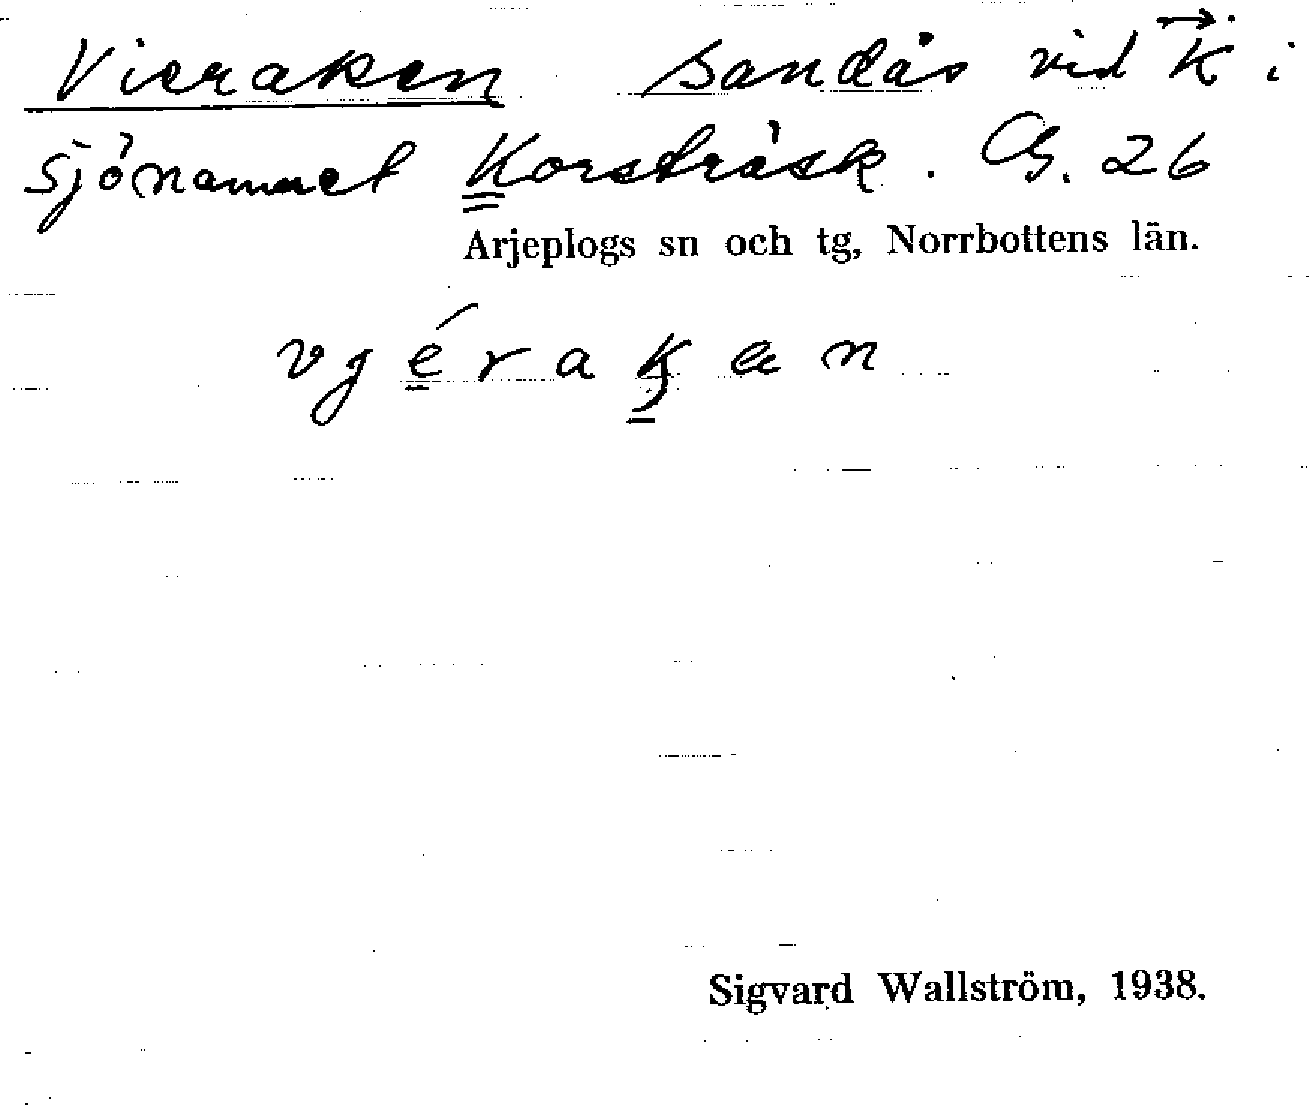 Vieraken sandås vid K i
sjönamnet Korsträsk. 26
Arjeplogs sn och tg, Norrbottens län.
vjérakan
Sigvard Wallström, 1938.